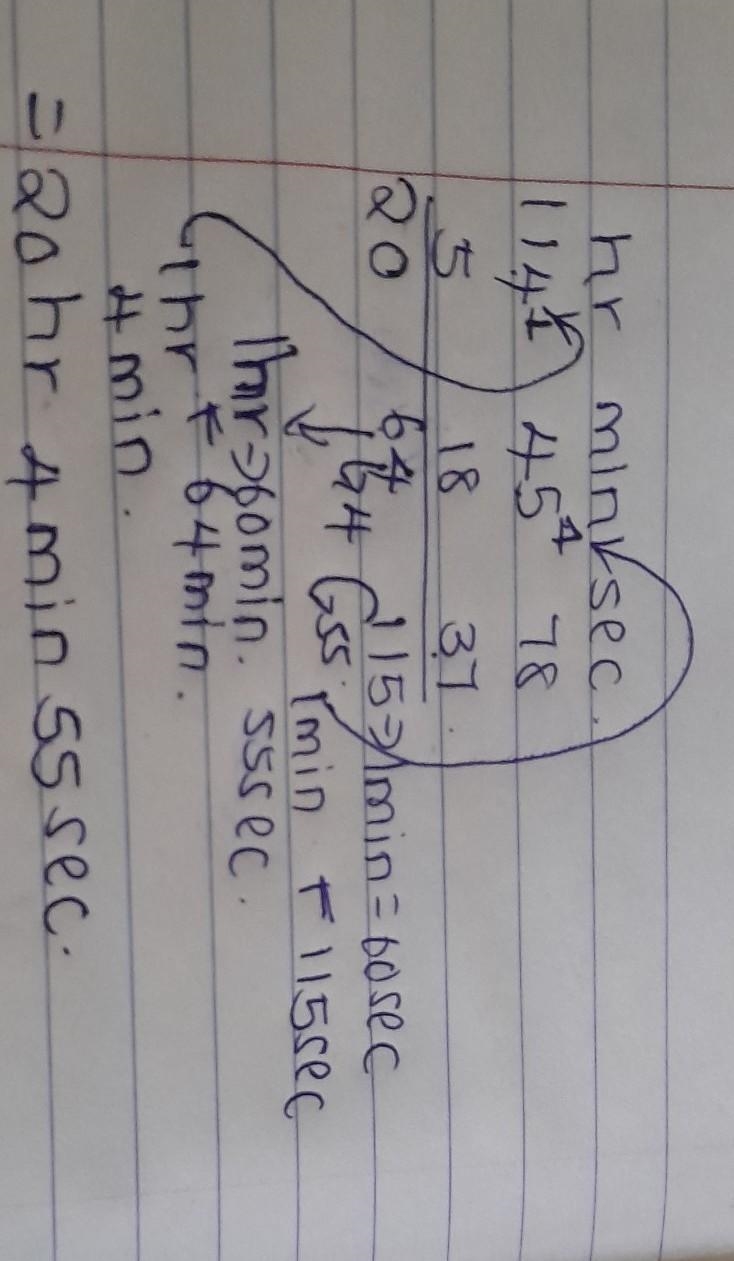 hr min sec.
114 1 45 1 78
5 18 37
20 64 115 ⇒ 1min = 60sec
64 55. 1min + 115sec
1hr ⇒ 60min. 55sec.
1hr + 64min.
4min.
= 20hr 4min 55sec.